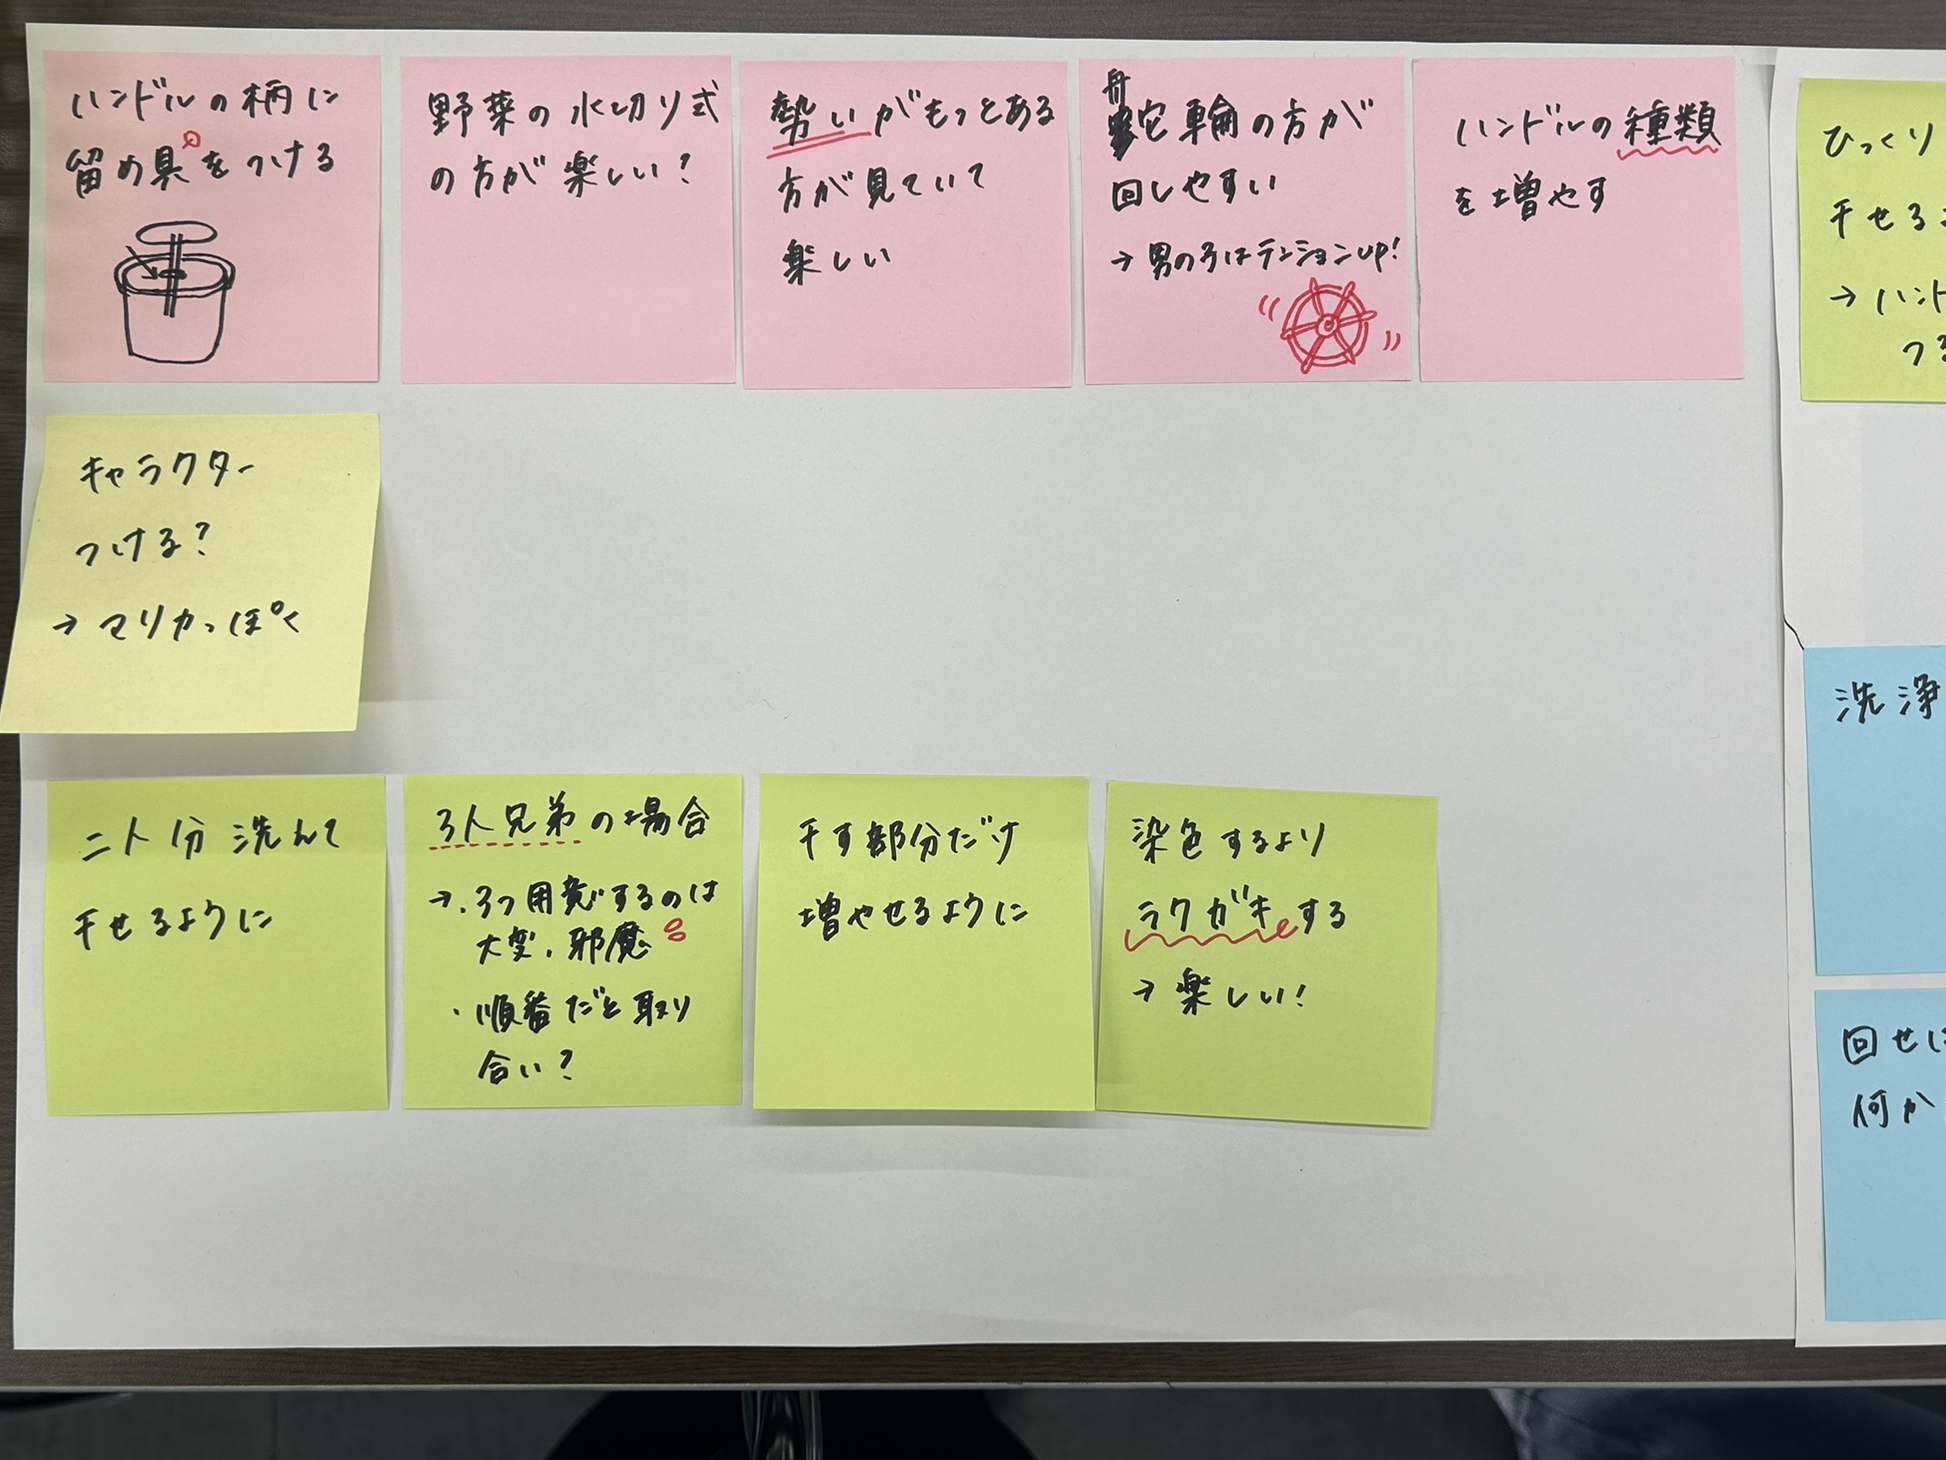 ハンドルの柄に
留め具をつける
野菜の水切り式
の方が楽しい?
勢いがもっとある
方が見ていて
楽しい
舵輪の方が
回しやすい
→ 男の子はテンションup!
ハンドルの種類
を増やす
ひっくり
干せる
→ ハンド
つる
キャラクター
つける?
→ マリカっぽく
二人分洗えて
干せるように
3人兄弟の場合
→・3つ用意するのは
大変、邪魔
・順番だと取り
合い?
干す部分だけ
増やせるように
染色するより
ラクガキする
→ 楽しい!
洗浄
回せば
何か